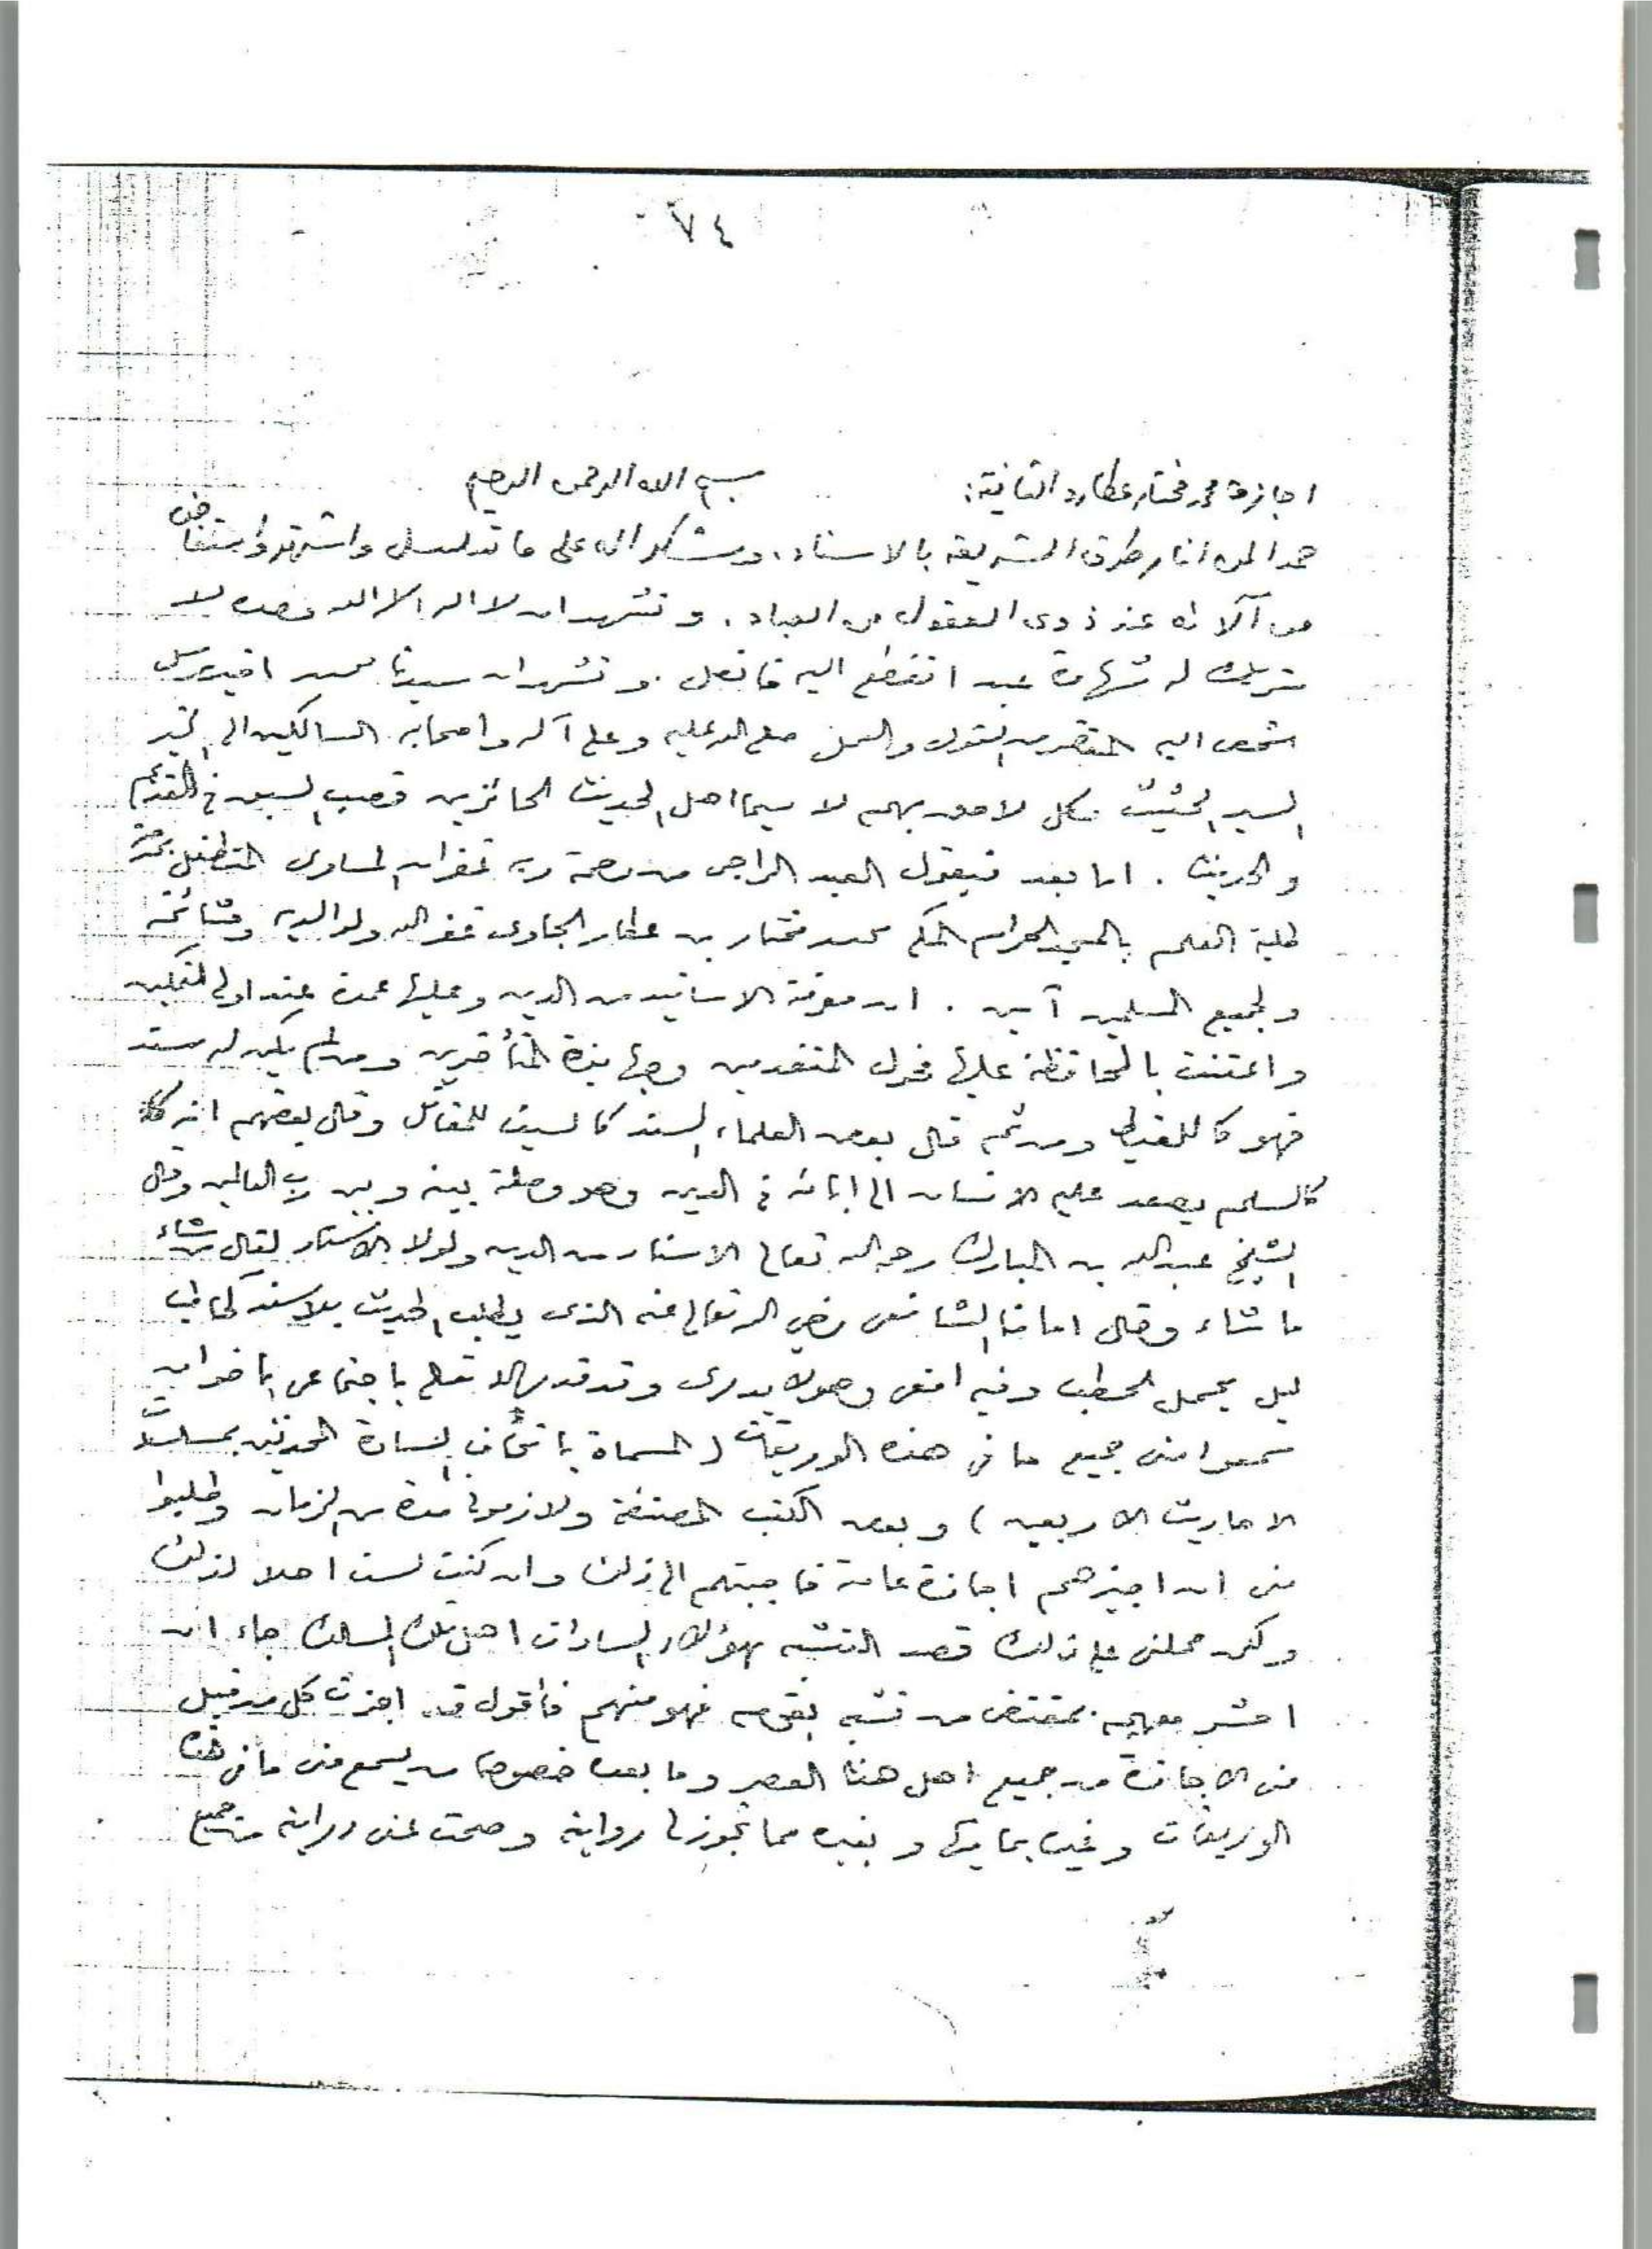 ٧٤
اجازة محمد مختار عطارد الثانية: بسم الله الرحمن الرحيم
حمدا لمن انار طرق الشريعة بالاسناد، ونشكر الله على ما تسلسل واشتهر واستفاض
من آلائه عند ذوى العقول من العباد. ونشهد ان لا اله الا الله وحده لا
شريك له شهادة عبد انقطع اليه فاتصل. ونشهد ان سيدنا محمد
اليه القول والعمل صلى الله عليه وعلى آله واصحابه السالكين الى الخير
السير الحثيث وكل لاحق بهم لا سيما اهل الحديث الحائزين قصب السبق فى القديم
والحديث. اما بعد فيقول العبد الراجى من رحمة ربه غفران المساوى المتطفل بخدمة
طلبة العلم بالمسجد الحرام المكى محمد مختار بن عطارد الجاوى غفر الله ولوالديه ومشائخه
ولجميع المسلمين آمين. ان معرفة الاسانيد من الدين وعليها عمدة عند اولى التمكين
واعتنت بالمحافظة عليها فحول المتقدمين وجهابذة المتأخرين ومن لم يكن له سند
فهو كاللقيط ومن ثم قال بعض العلماء السند كالسيف للمقاتل وقال بعضهم انه
كالسلم يصعد عليه الانسان الى ابائه فى الدين وهو وصلة بينه وبين رب العالمين وقال
الشيخ عبدالله بن المبارك رحمه الله تعالى الاسناد من الدين ولولا الاسناد لقال من شاء
ما شاء وقال امامنا الشافعى رضي الله تعالى عنه الذى يطلب الحديث بلا سند كحاطب
ليل يحمل الحطب وفيه افعى وهو لا يدرى وقد قدر الله تعالى باجتماعى باخوان
سمعوا منى جميع ما فى هذه الوريقات (المسماة باتحاف السادة المحدثين بمسلسلات
الاحاديث الاربعين) وبعض الكتب المصنفة ولازمونى مدة من الزمان وطلبوا
منى ان اجيزهم اجازة عامة فاجبتهم الى ذلك وان كنت لست اهلا لذلك
ولكن حملنى على ذلك قصد التشبه بهؤلاء السادات اهل تلك المسالك رجاء ان
احشر معهم بمقتضى من تشبه بقوم فهو منهم فأقول قد اجزت كل من قبل
منى الاجازة من جميع اهل هذا العصر وما بعده خصوصا من يسمع منى ما فى هذه
الوريقات وغيره بما فيها وبغيره مما تجوز لى روايته وصحت عنى درايته من جميع